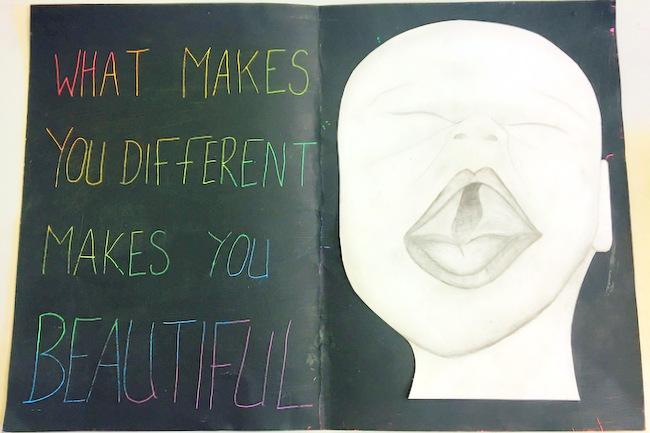 WHAT MAKES
YOU DIFFERENT
MAKES YOU
BEAUTIFUL